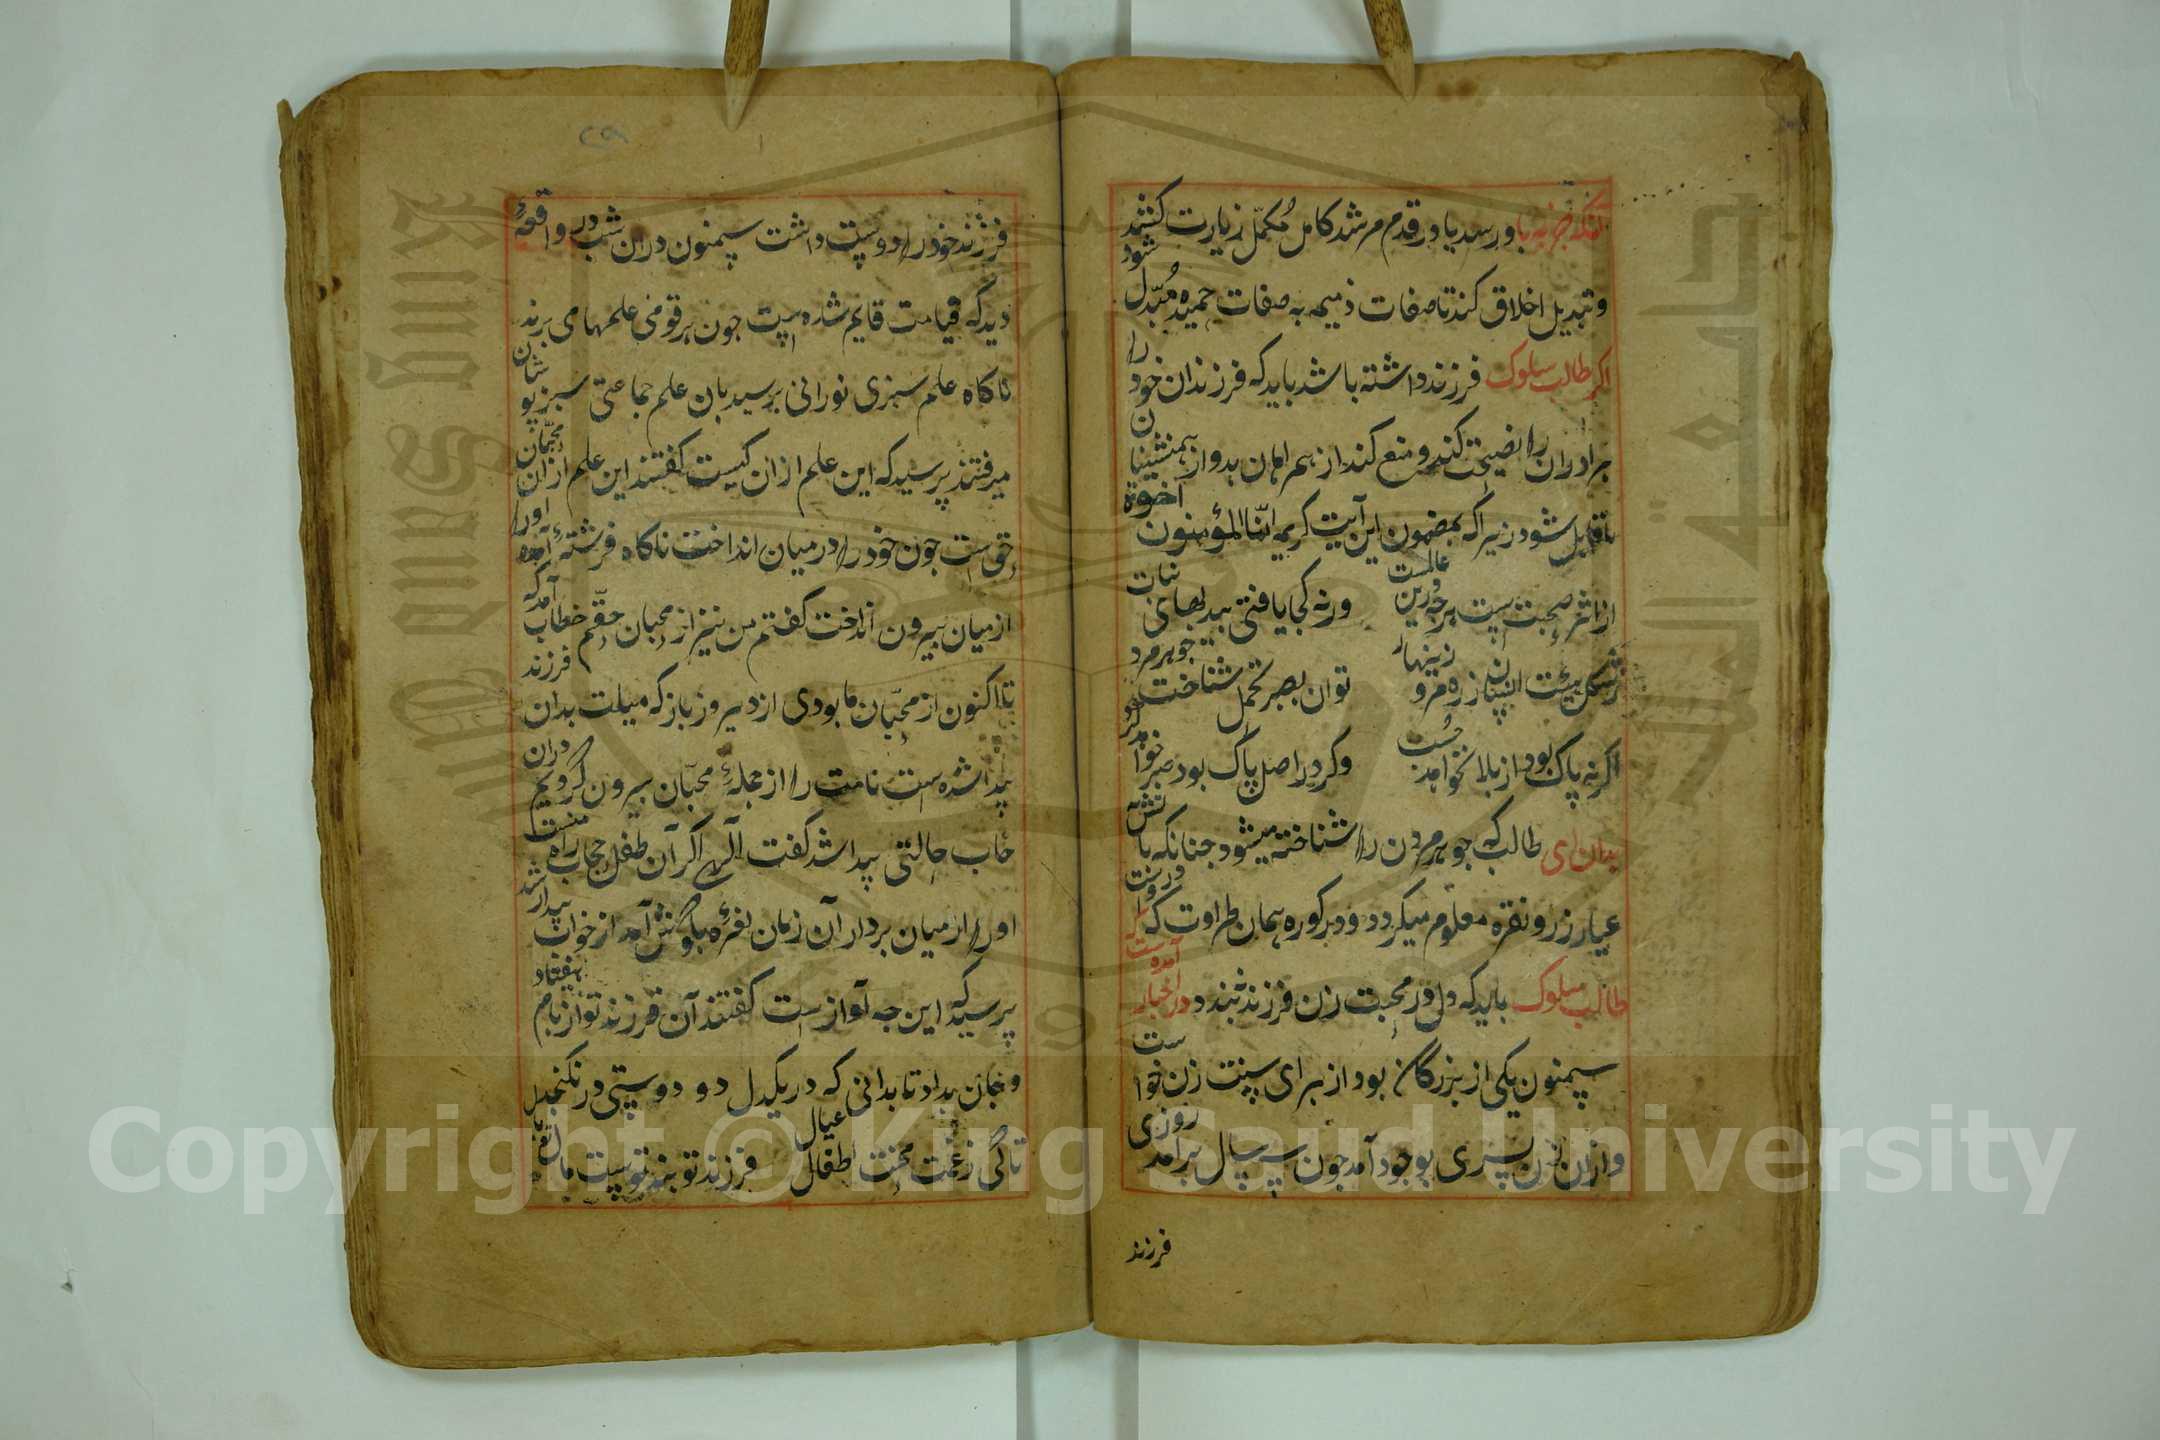 باو رسد یا در قدم مرشد کامل مُکمّل زیارت کنند
و تبدیل اخلاق کند تا صفات ذمیمه به صفات حمیده مُبدّل شود
اکر طالب سلوک فرزند داشته باشد باید که فرزندان خود را
برادران را نصیحت کند و منع کند از همراهان بد و از همنشینان
قابل شود زیراکه بمضمون این آیت کریمه انّما المؤمنون اخوة
از اثر صحبت است هرچه درین عالمست
ورنه کجا یافتی بید بهای نبات
توان بصبر تحمل شناخت جوهر مرد
اکر نه پاک بود از بلا نخواهد جُست
وکر در اصل پاک بود صبر خواهد کرد
بدان ای طالب که جوهر مردن را شناخته میشود جنانکه با تش
عیار زر و نقره معلوم میکردد و در کوره همان طراوت که در وست
طالب سلوک باید که دل در محبت زن فرزند نبندد در اخبار آمده ست
سمنون یکی از بزرگان بود از برای سنت زن خواست
و ازان زن پسری بوجود آمد جون سه سال برآمد روزی
فرزند
فرزند خود را دوست داشت سمنون دران شب در واقعهٔ
دید که قیامت قایم شده است جون هر قومی علمهای برند
ناکاه علم سبزی نورانی برسید بان علم جماعتی سبزپوشان
میرفتند پرسید که این علم ازان کیست کفتند این علم ازان محبّان
حق است جون خود را درمیان انداخت ناکاه فرشتهٔ آمد اورا
ازمیان بیرون انداخت کفتم من نیز از محبان حقم خطاب آمد که
تا اکنون از محبّان ما بودی از دیروز باز که میلت بدان فرزند
پیدا شده است نامت را از جملهٔ محبّان بیرون کردیم دران
خاب حالتی پیدا شد کفت الهی اکر آن طفل حجاب راه منست
اورا ازمیان بردار آن زمان نعرهٔ باوکوش آمد از خواب بیدار شد
پرسید که این جه آواز است کفتند آن فرزند تو از بام بیفتاد
و جان بداد تا بدانی که در یکدل دو دوستی درنکنجد
تا کی ز غمت محنت اطفال عیال